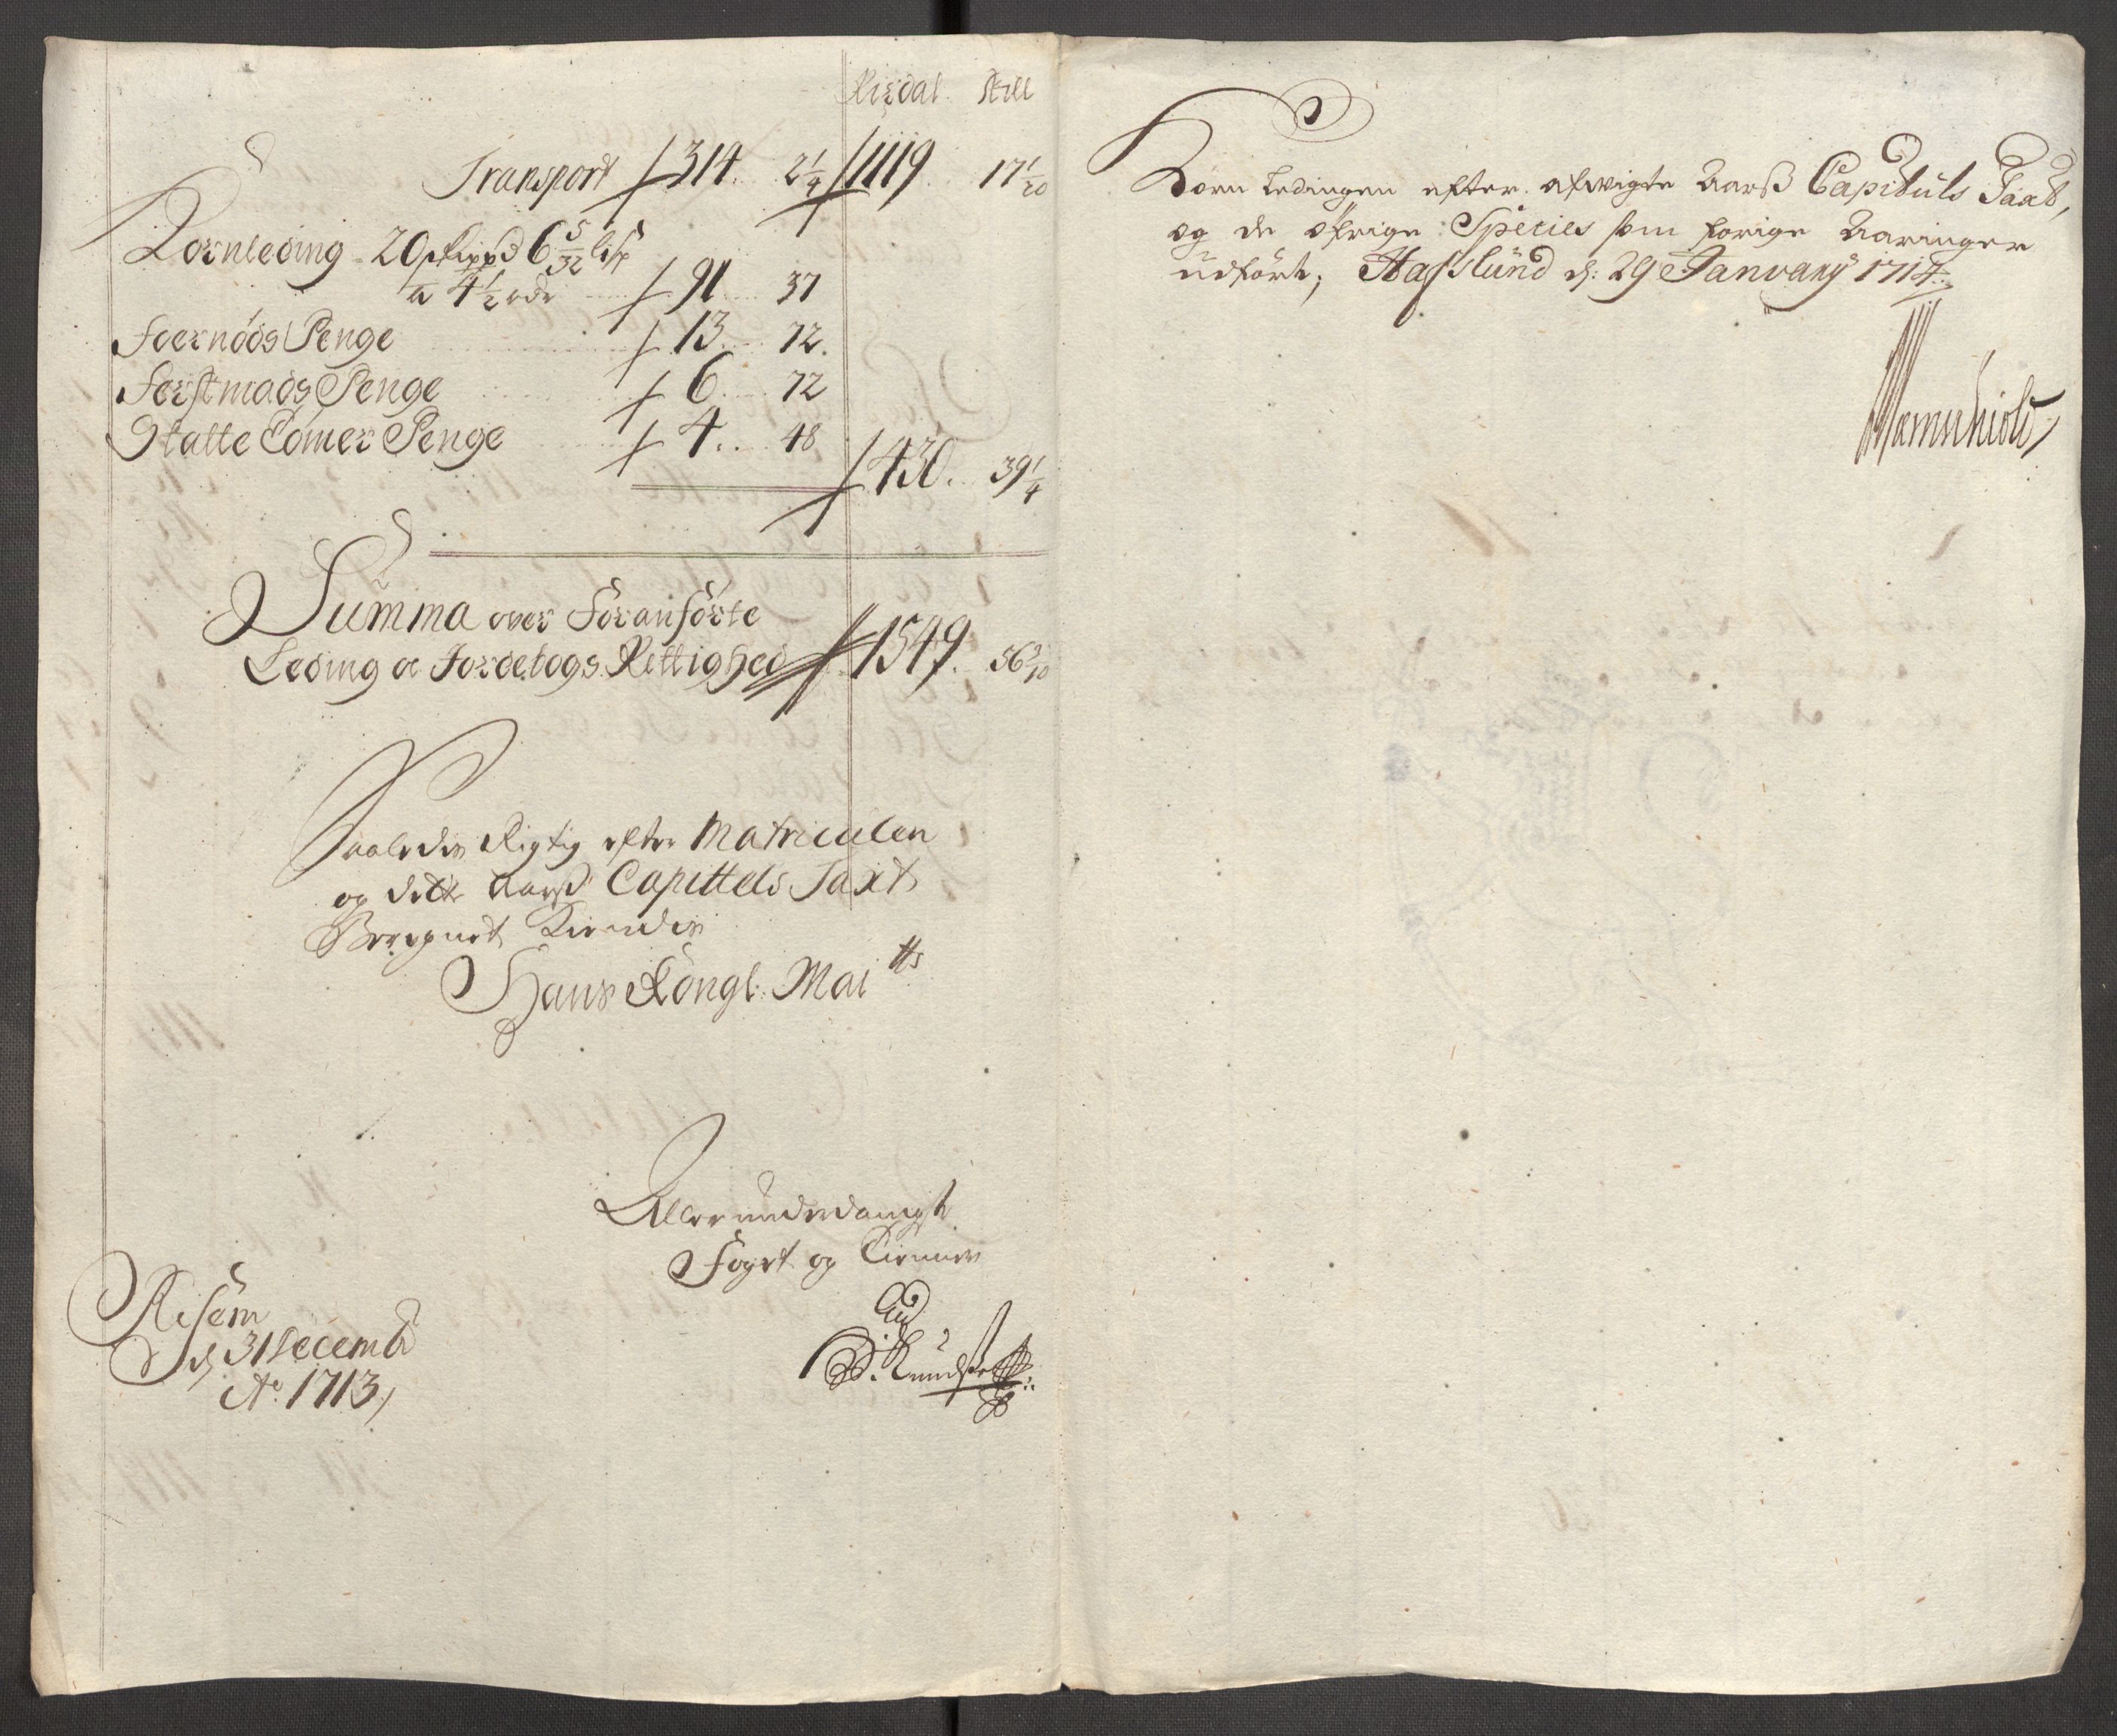 Rixdal. skill
Transport 314. 2 1/4 1119. 17 1/20
Kornleding 20 skippd 6 5/32 lisp
a 4 1/2 rdr 91 37
Foernøds Penge 13 72.
Førstmads Penge 6 72
Statte Tømer Penge 4. 48
430. 39 1/4
Summa over Foranførte
Leding oc Foredebogs Rettighed 1549. 56 3/10
Saaledis Rigtig efter Matriculen
og dette Aarß Capittels Taxt
Beregnet Kiendis
Hans Kongl. Maitts
Allerunderdanigste
Foget og Tienner
Risøm
d 31 Decemb
Ao 1713,
Korn Ledingen efter afvigte Aarß Capituls Taxt,
og de øfrige Species som forige Aaringer
udført, Hafslund d: 29 January 1714.